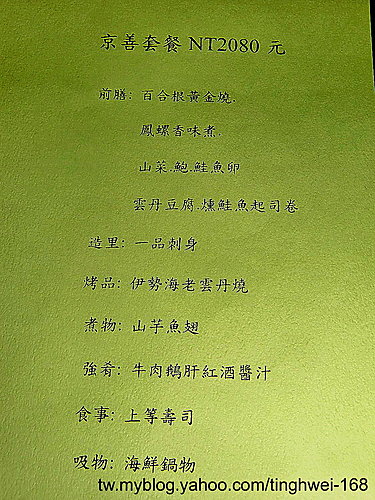 京善套餐 NT2080 元
前膳: 百合根黃金燒.
鳳螺香味煮.
山菜.鮑.鮭魚卵
雲丹豆腐.燻鮭魚起司卷
造里: 一品刺身
烤品: 伊勢海老雲丹燒
煮物: 山芋魚翅
強肴: 牛肉鵝肝紅酒醬汁
食事: 上等壽司
吸物: 海鮮鍋物
tw.myblog.yahoo.com/tinghwei-168